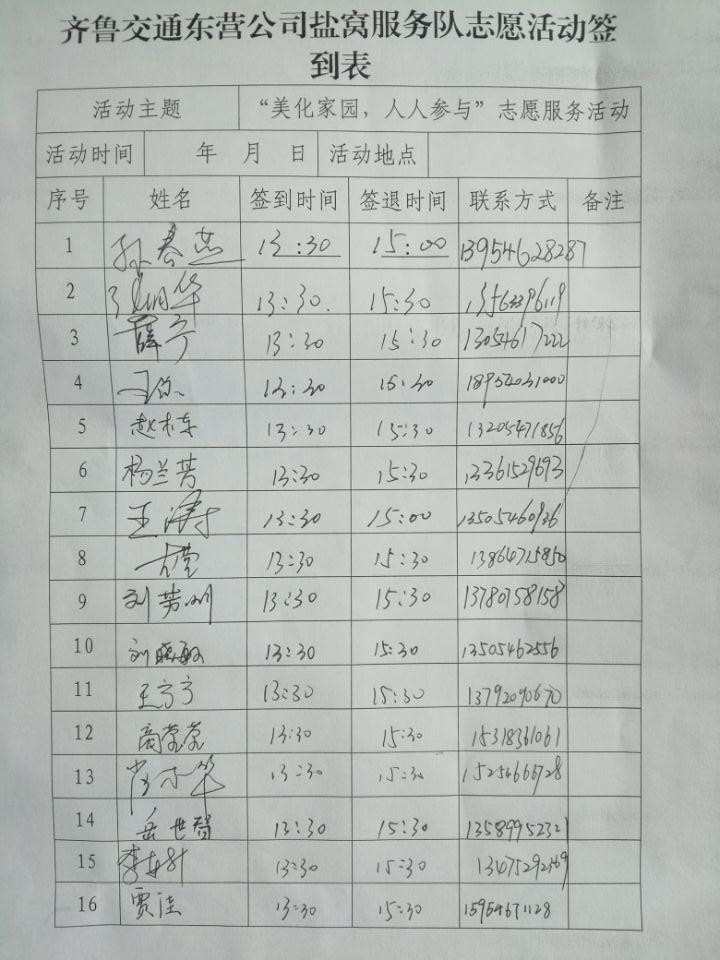 齐鲁交通东营公司盐窝服务队志愿活动签
到表
活动主题 “美化家园，人人参与”志愿服务活动
活动时间 年 月 日 活动地点
序号 姓名 签到时间 签退时间 联系方式 备注
1 孙春燕 13:30 15:00 13954628287
2 13:30. 15:30 13563396119
3 薛宁 13:30 15:30 13054617222
4 13:30 15:30 18954031000
5 赵林东 13:30 15:30 13205471856
6 杨兰芳 13:30 15:30 13361529693
7 王涛 13:30 15:00 13505460936
8 13:30 15:30 13864715850
9 刘芳州 13:30 15:30 13780758158
10 刘晓敏 13:30 15:30 13505462556
11 王方方 13:30 15:30 13792090670
12 商莹莹 13:30 15:30 15318361061
13 13:30 15:30 15254666728
14 岳世智 13:30 15:30 13589952321
15 13:30 15:30 13475292569
16 贾洼 13:30 15:30 15954671128